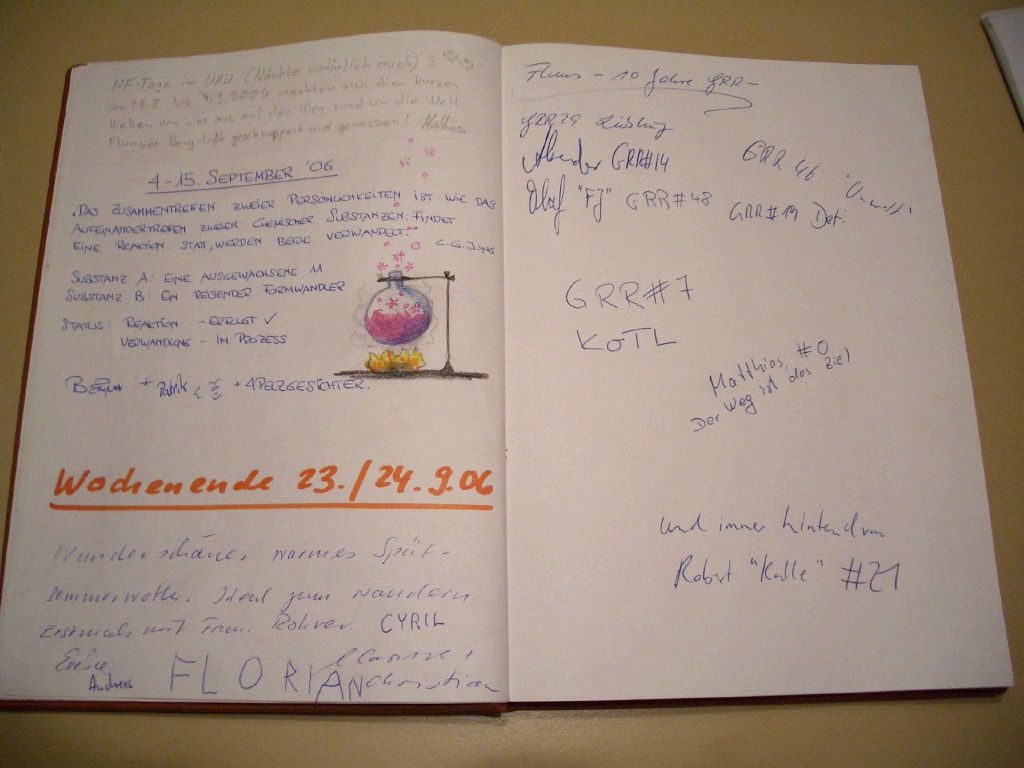 HF-Tage im (Nächte natürlich auch)
vom 28.8. bis 4.9.2006 machten sich die kurzen
Wellen von hier aus auf den Weg rund um die Welt.
Flumser Berg-luft geschnuppert und genossen!
4-15. SEPTEMBER '06
"DAS ZUSAMMENTREFFEN ZWEIER PERSÖNLICHKEITEN IST WIE DAS
AUFEINANDERTREFFEN ZWEIER CHEMISCHER SUBSTANZEN: FINDET
EINE REAKTION STATT, WERDEN BEIDE VERWANDELT."
C.G. JUNG
SUBSTANZ A: EINE AUSGEWACHSENE 11
SUBSTANZ B: EIN REISENDER FORMWANDLER
STATUS: REACTION - ERFOLGT ✓
VERWANDLUNG - IM PROZESS
+ Patrik + 4 PELZGESICHTER.
Wochenende 23./24.9.06
Wunderschönes, warmes Spät-
sommerwetter. Ideal zum wandern.
Erstmals mit Fam. Rohrer. CYRIL
Andreas FLORIAN
Christian
Flums - 10 Jahre GRR -
GRR 29
GRR#14
GRR 46
Olaf "FJ" GRR#48
GRR#19 Det.
GRR#7
KOTL
Matthias, #0
Der Weg ist das Ziel
und immer hintendran
Robert "Kalle" #21